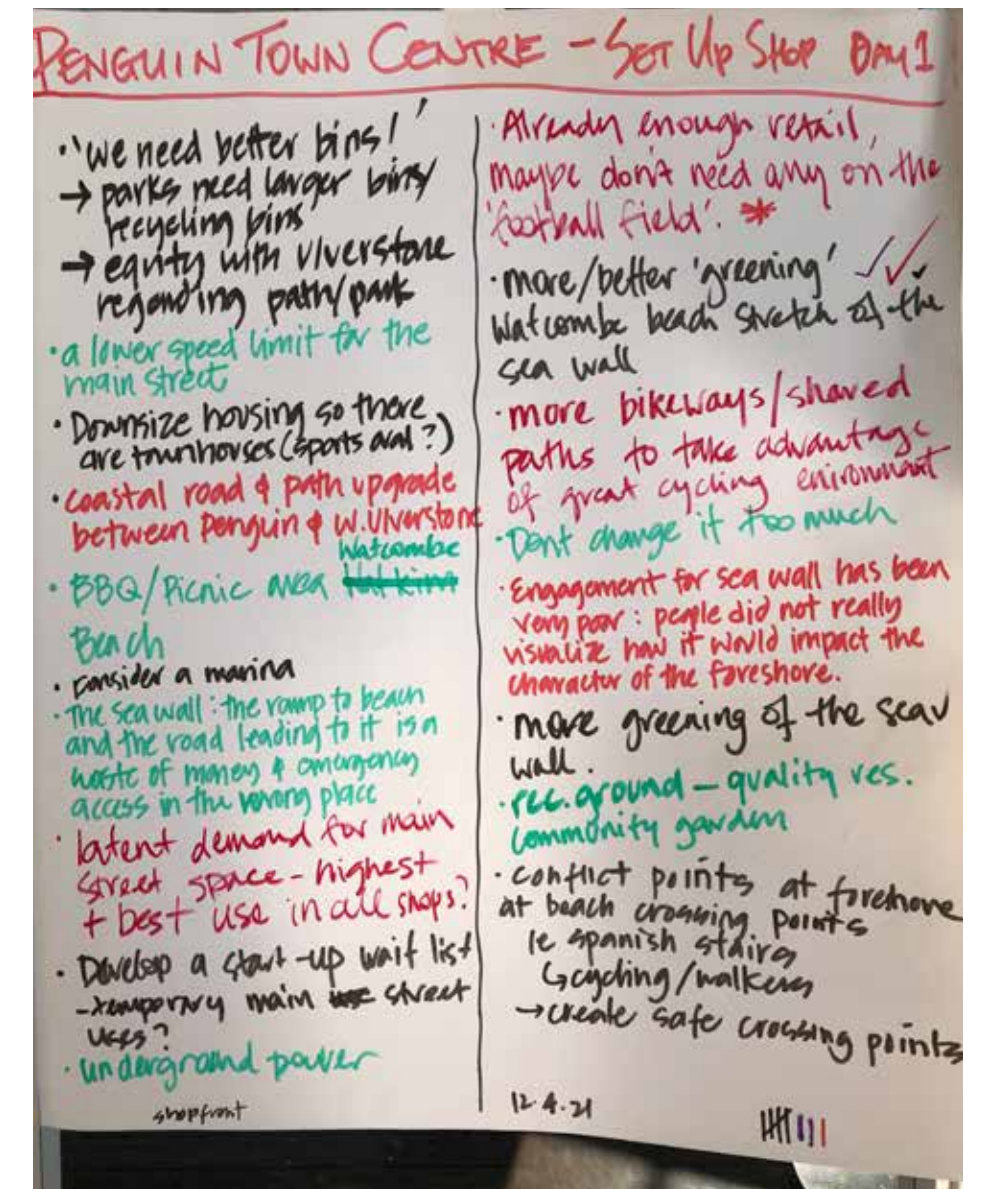 PENGUIN TOWN CENTRE - SET UP SHOP DAY 1
· "we need better bins!"
→ parks need larger bins/
recycling bins
→ equity with Ulverstone
regarding path/park
· a lower speed limit for the
main street
· Downsize housing so there
are townhouses (sports oval?)
· coastal road & path upgrade
between Penguin & W. Ulverstone
Watcombe
· BBQ/Picnic area
Beach
· consider a marina
· The sea wall: the ramp to beach
and the road leading to it is a
waste of money & emergency
access in the wrong place
· latent demand for main
street space - highest
+ best use in all shops?
· Develop a start-up wait list
- temporary main street
uses?
· underground power
shopfront
· Already enough retail,
maybe don't need any on the
'football field'. *
· more/better 'greening' ✓✓✓
Watcombe beach stretch of the
sea wall
· more bikeways/shared
paths to take advantage
of great cycling environment
· Dont change it too much
· Engagement for sea wall has been
very poor: people did not really
visualize how it would impact the
character of the foreshore.
· more greening of the sea
wall.
· rec. ground - quality res.
community garden
· conflict points at foreshore
at beach crossing points
ie spanish stairs
↳ cycling/walkers
→ create safe crossing points
12.4.21